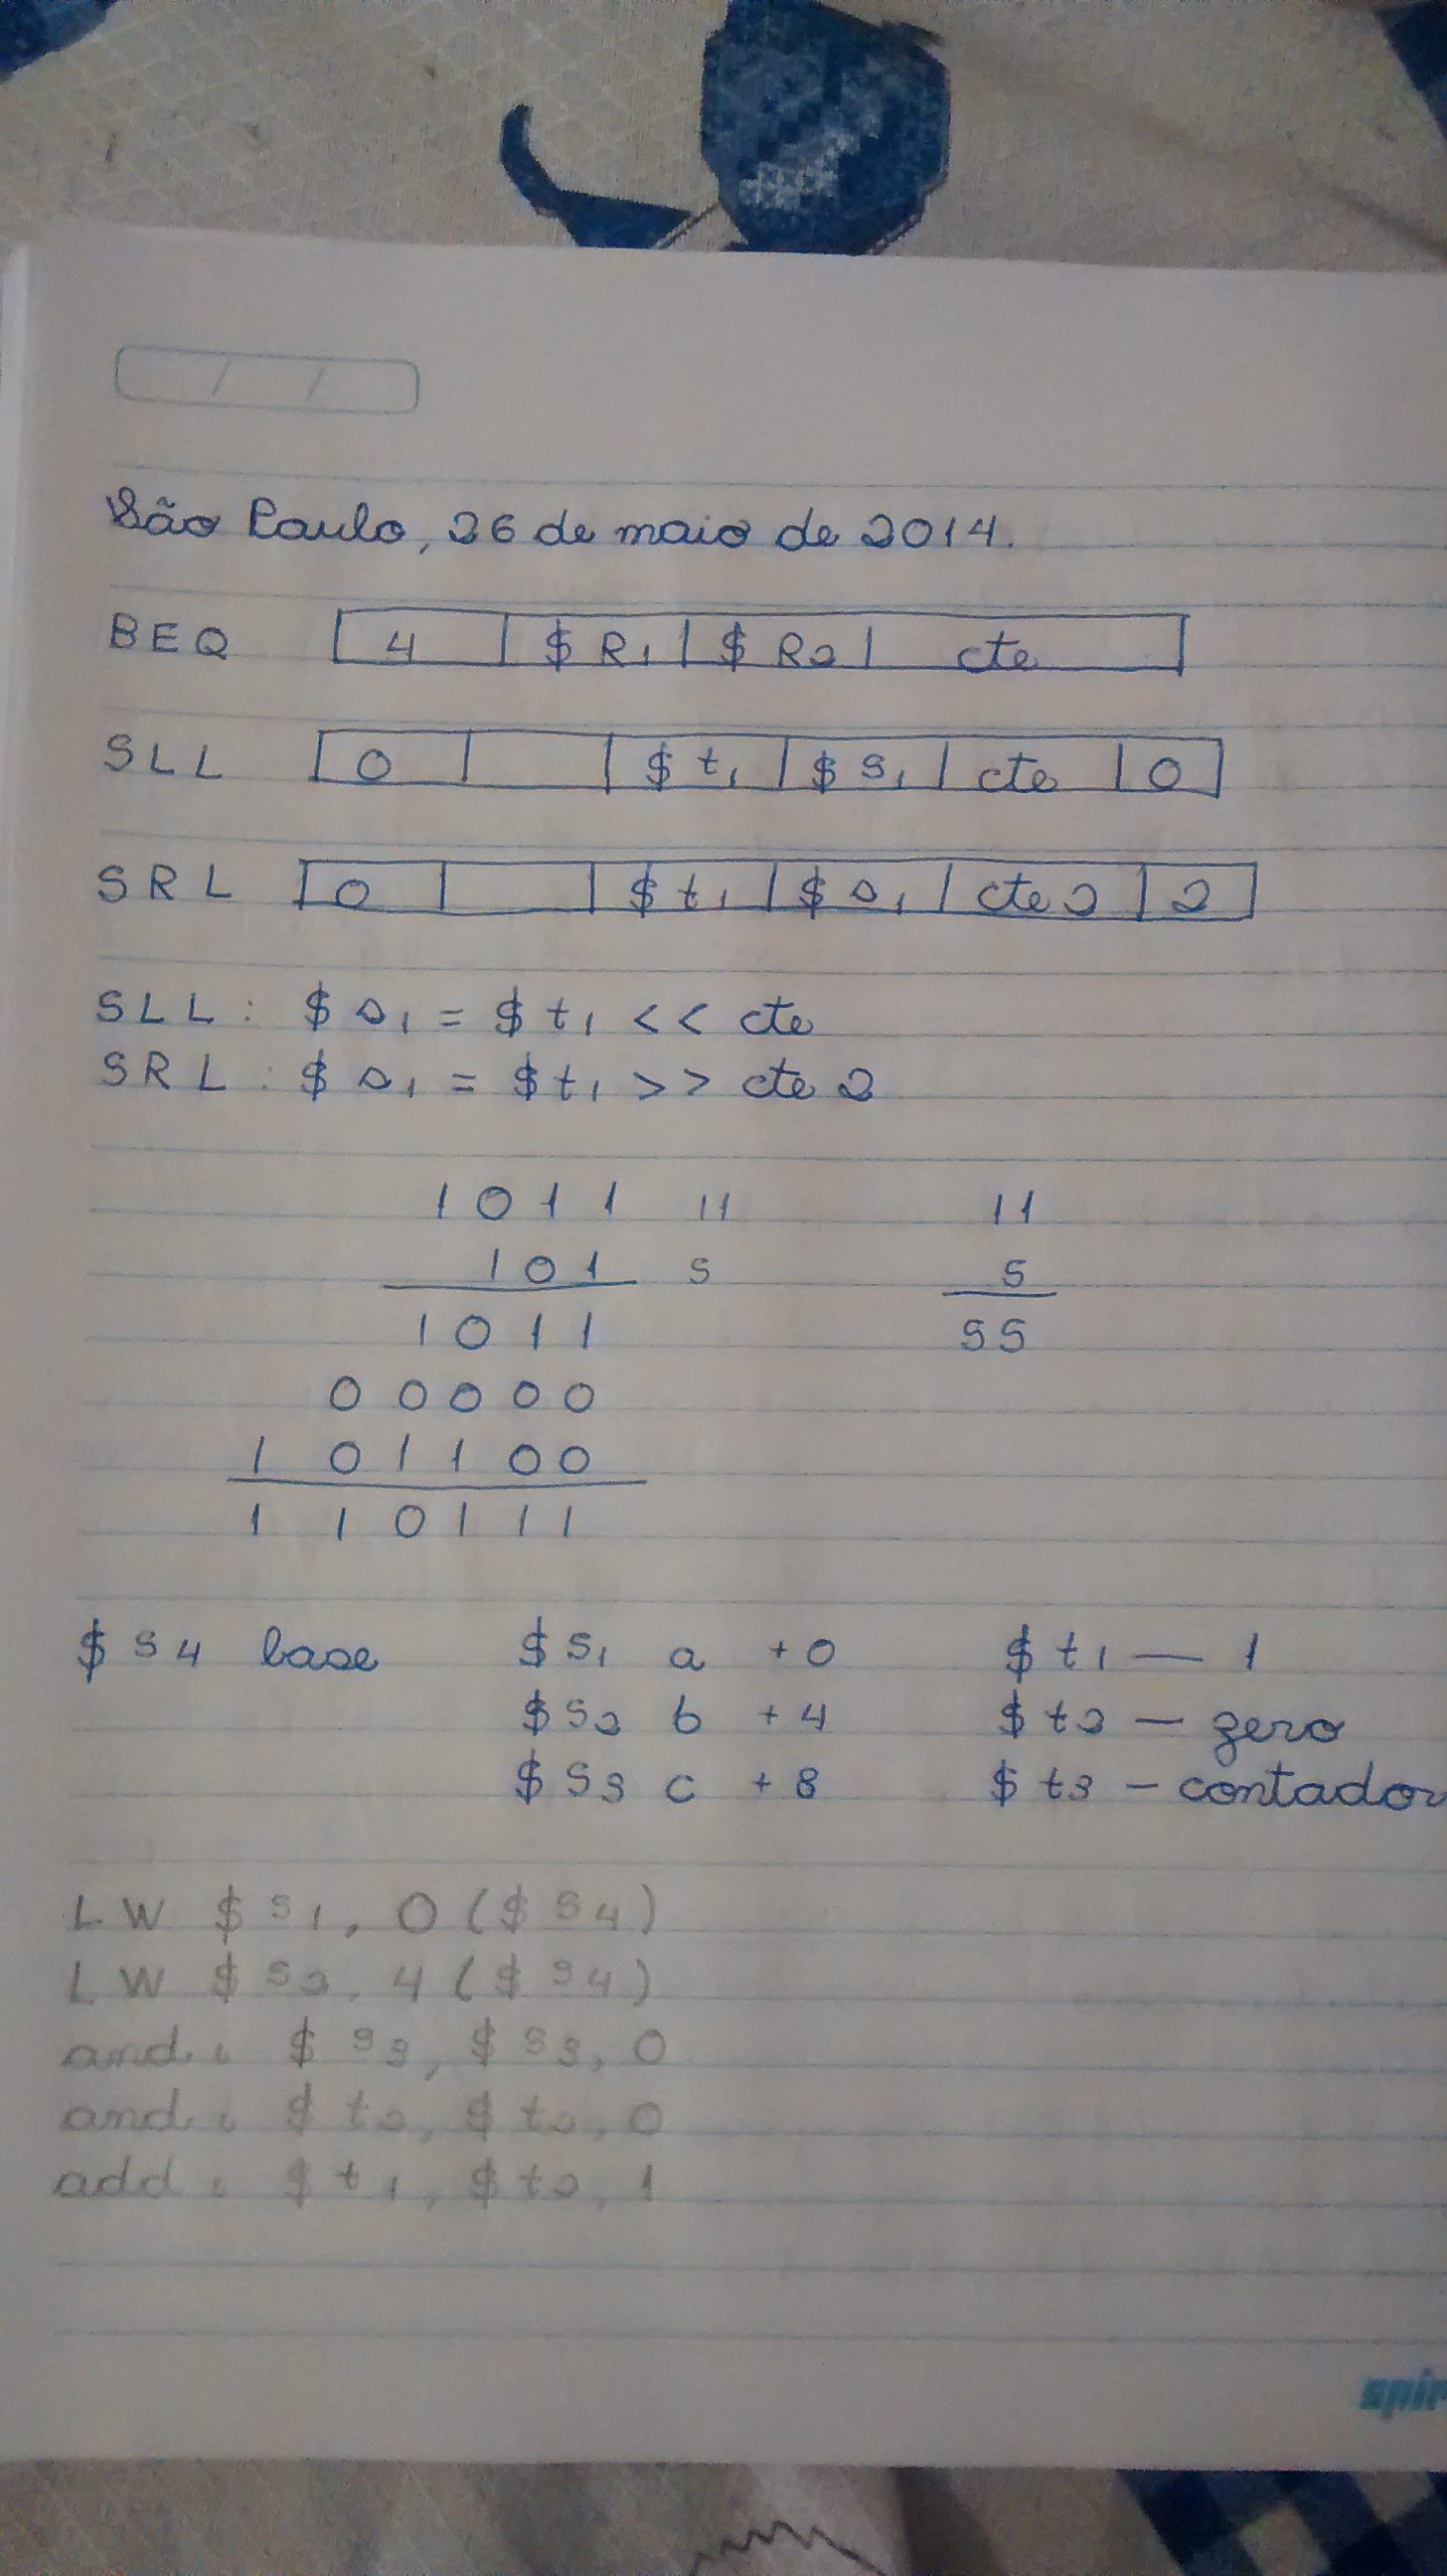 / /
São Paulo, 26 de maio de 2014.
BEQ 4 | $R1 | $R2 | cte
SLL 0 | | $t1 | $s1 | cte | 0
SRL 0 | | $t1 | $s1 | cte2 | 2
SLL: $s1 = $t1 << cte
SRL: $s1 = $t1 >> cte2
1011 11 11
101 5 5
1011 55
00000
101100
110111
$s4 base $s1 a +0 $t1 — 1
$s2 b +4 $t2 — zero
$s3 c +8 $t3 - contador
LW $s1, 0($s4)
LW $s2, 4($s4)
andi $s3, $s3, 0
andi $t2, $t2, 0
addi $t1, $t2, 1